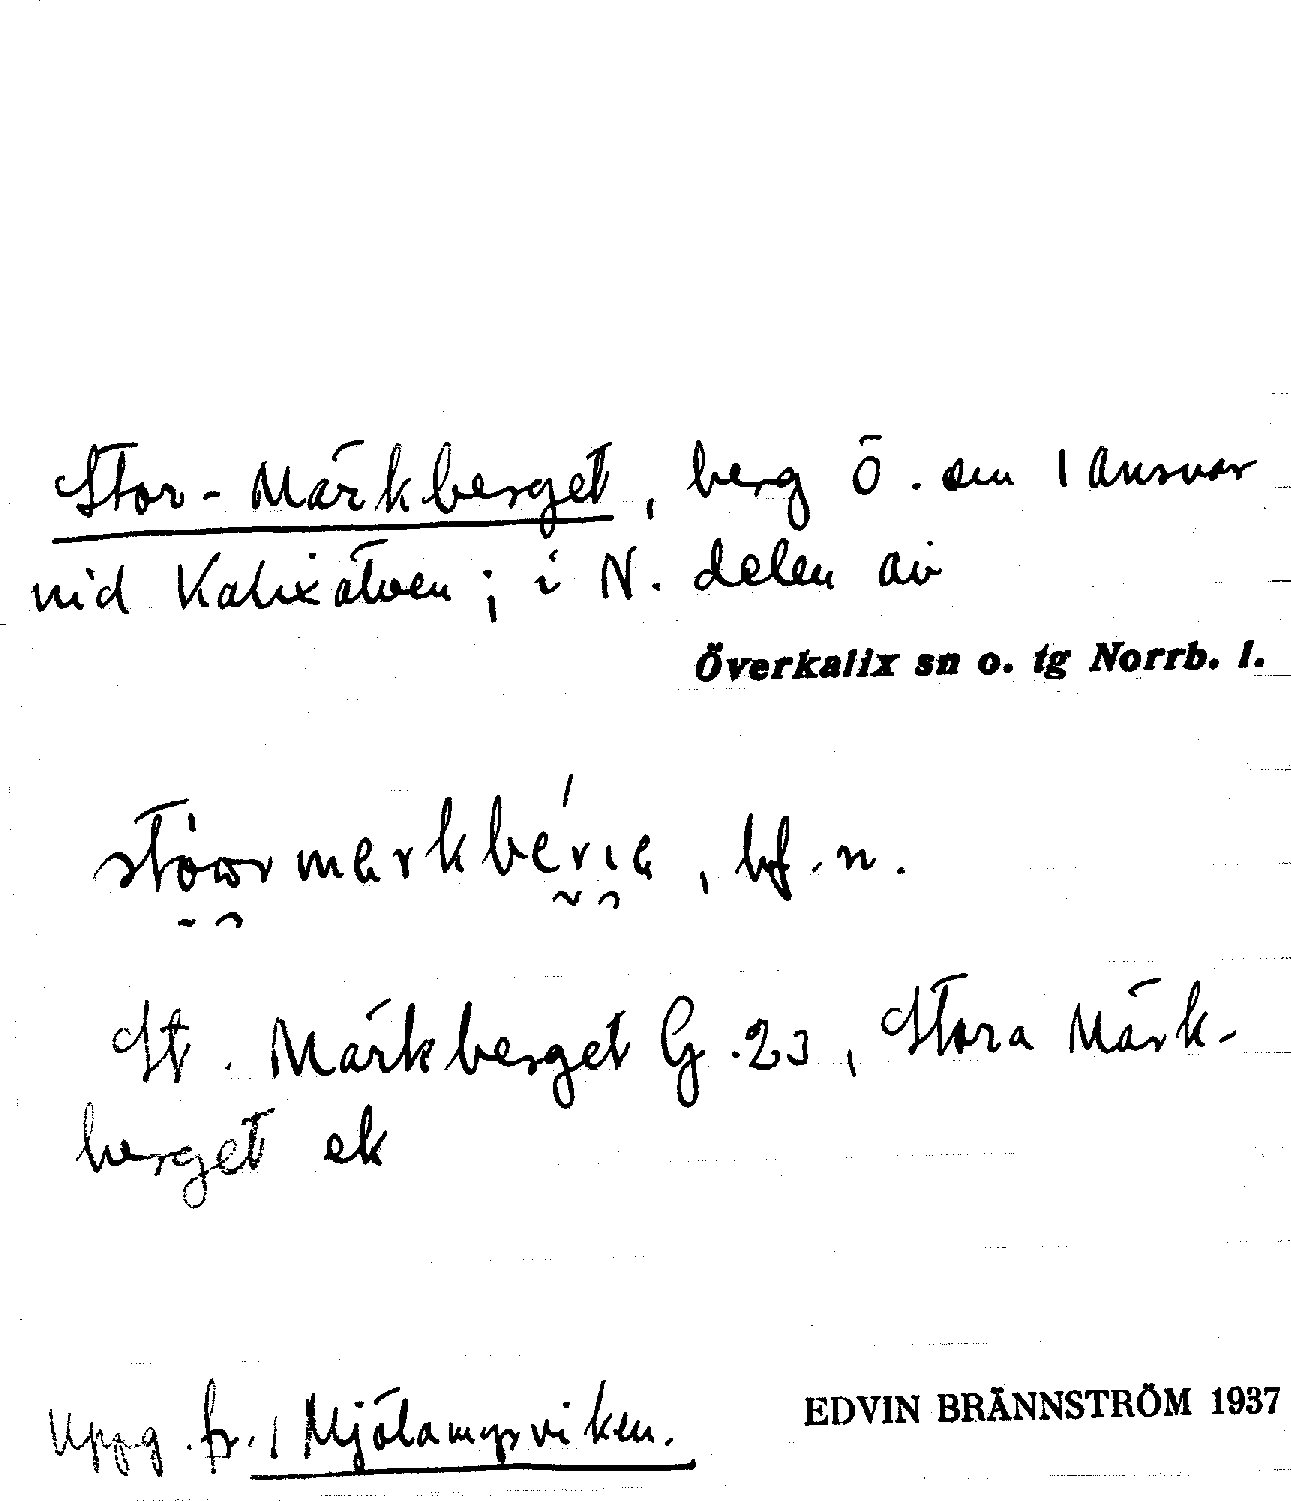 Stor-Märkberget, berg Ö. om Lansvar
vid Kalixälven; i N. delen av
Överkalix sn o. tg Norrb. l.
bf. n.
St. Märkberget G.23, Stora Märk-
berget ek
Uppg. fr. Mjölamyrviken.
EDVIN BRÄNNSTRÖM 1937